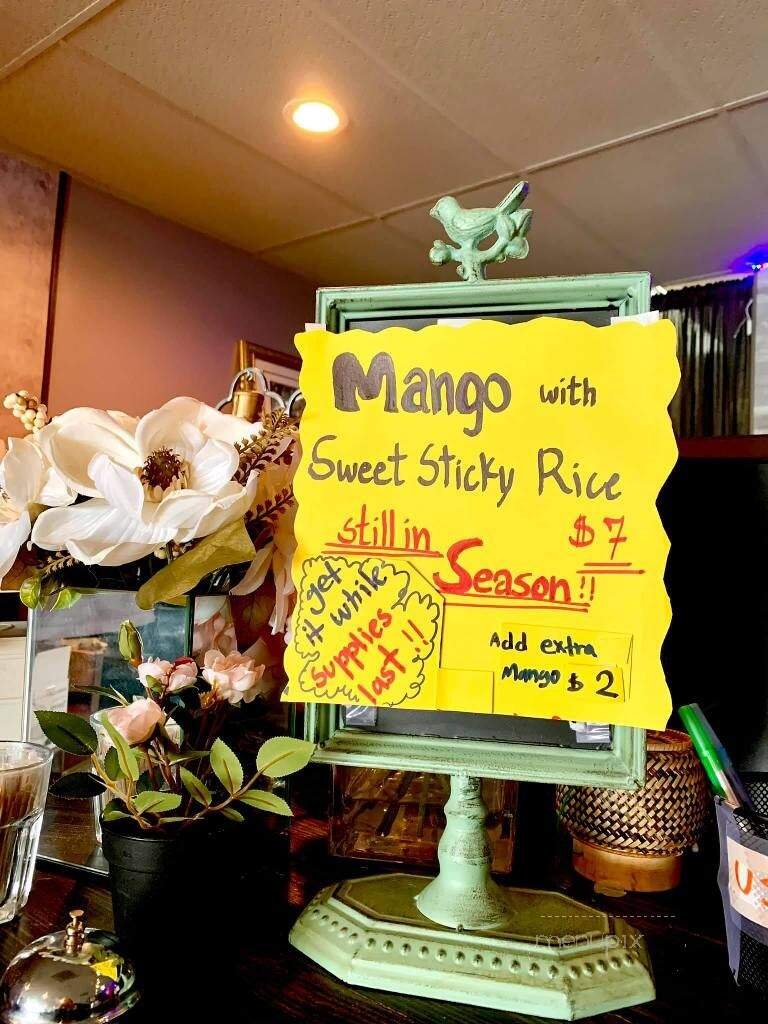 Mango with
Sweet Sticky Rice
still in
$7
Season!!
get
it while
supplies
last!!
Add extra
Mango $2
menupix